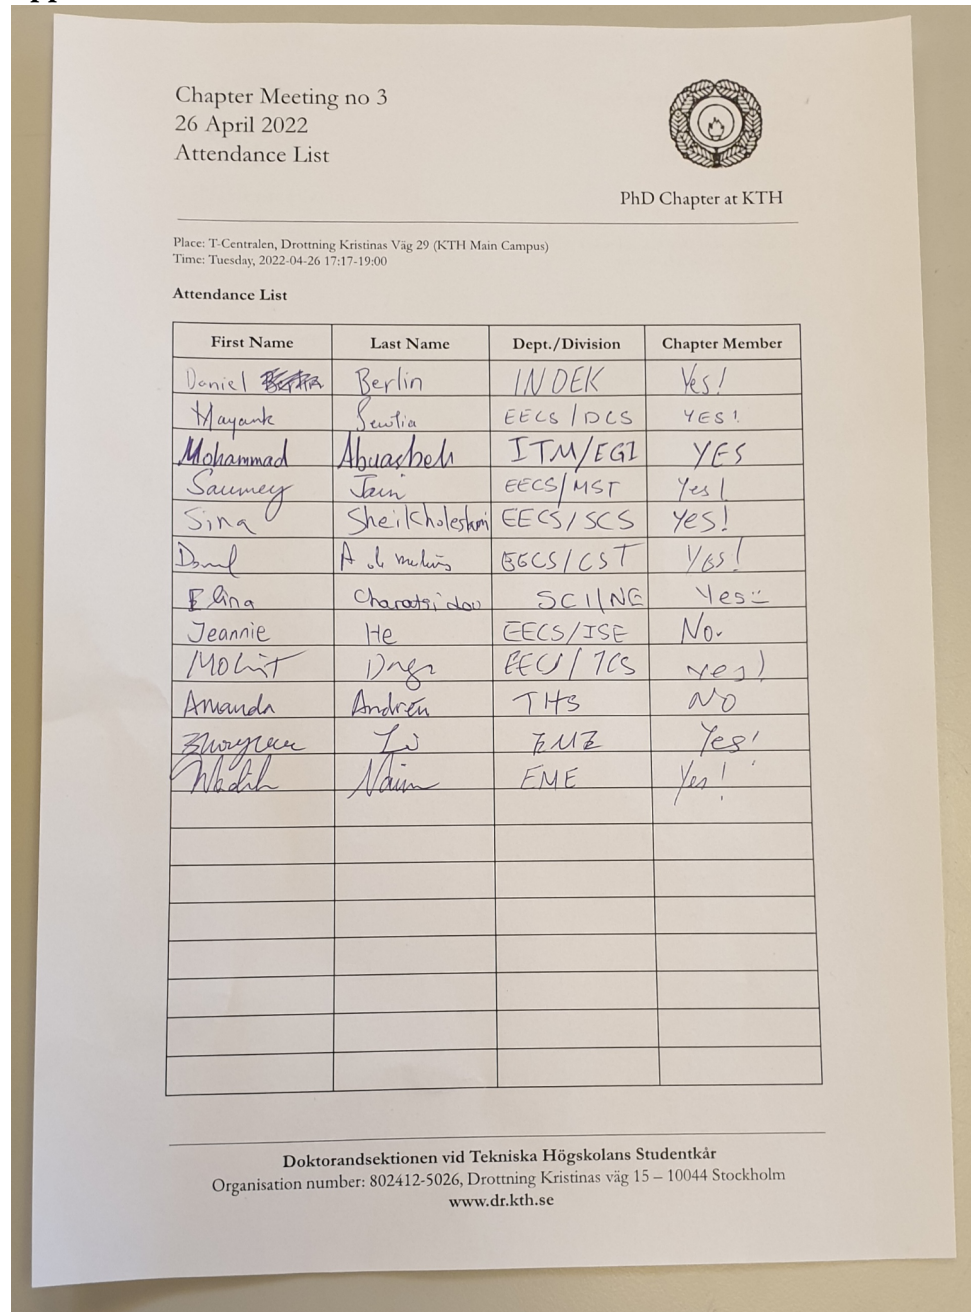 Chapter Meeting no 3
26 April 2022
Attendance List
PhD Chapter at KTH
Place: T-Centralen, Drottning Kristinas Väg 29 (KTH Main Campus)
Time: Tuesday, 2022-04-26 17:17-19:00
Attendance List
First Name Last Name Dept./Division Chapter Member
Daniel Berlin INDEK Yes!
Mayank EECS/DCS YES!
Mohammad Abuasbeh ITM/EGI YES
Saumey Jain EECS/MST Yes!
Sina Sheikholeslami EECS/SCS Yes!
EECS/CST Yes!
Elina Charatsidou SCI/NE Yes
Jeannie He EECS/ISE No.
Mohit EECS/TCS yes!
Amanda Andrén THS NO
Yes!
Wadih Naim EME Yes!
Doktorandsektionen vid Tekniska Högskolans Studentkår
Organisation number: 802412-5026, Drottning Kristinas väg 15 – 10044 Stockholm
www.dr.kth.se